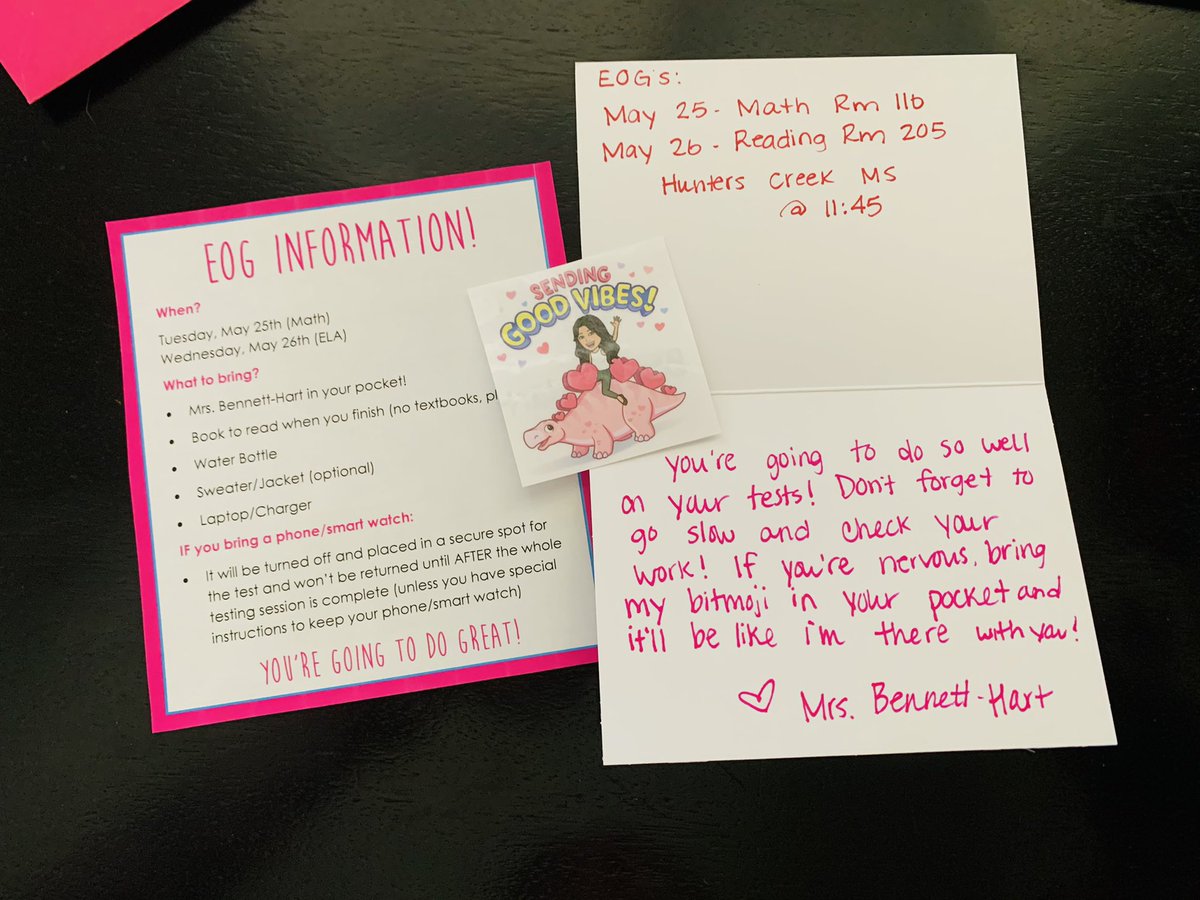 EOG INFORMATION!
When?
Tuesday, May 25th (Math)
Wednesday, May 26th (ELA)
What to bring?
• Mrs. Bennett-Hart in your pocket!
• Book to read when you finish (no textbooks,
• Water Bottle
• Sweater/Jacket (optional)
• Laptop/Charger
IF you bring a phone/smart watch:
• It will be turned off and placed in a secure spot for
the test and won't be returned until AFTER the whole
testing session is complete (unless you have special
instructions to keep your phone/smart watch)
YOU'RE GOING TO DO GREAT!
SENDING
GOOD VIBES!
EOG's:
May 25 - Math Rm 116
May 26 - Reading Rm 205
Hunters Creek MS
@ 11:45
You're going to do so well
on your tests! Don't forget to
go slow and check your
work! If you're nervous, bring
my bitmoji in your pocket and
it'll be like i'm there with you!
♡ Mrs. Bennett-Hart